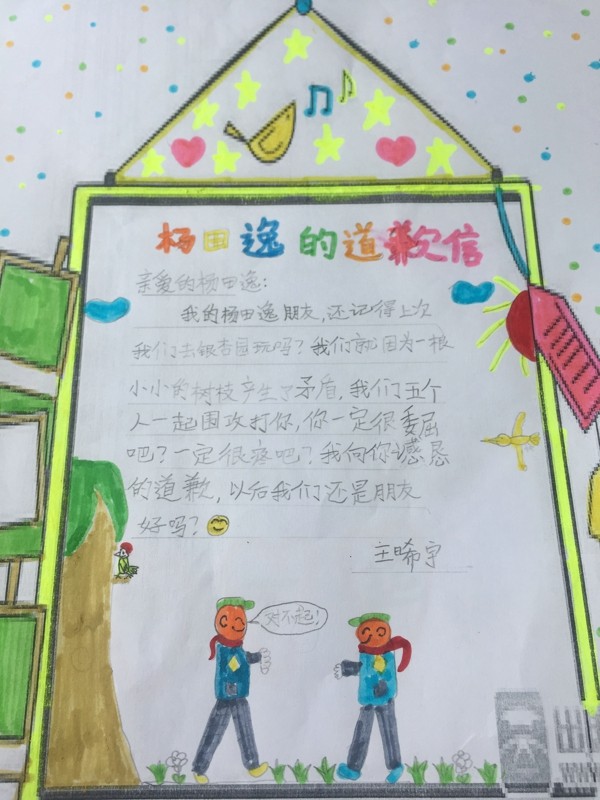 杨田逸的道歉信
亲爱的杨田逸:
我的杨田逸朋友,还记得上次
我们去银杏园玩吗?我们就因为一根
小小的树枝产生了矛盾,我们五个
人一起围攻打你,你一定很委屈
吧?一定很疼吧?我向你诚恳
的道歉,以后我们还是朋友
好吗?
王晞宇
对不起!
WWW